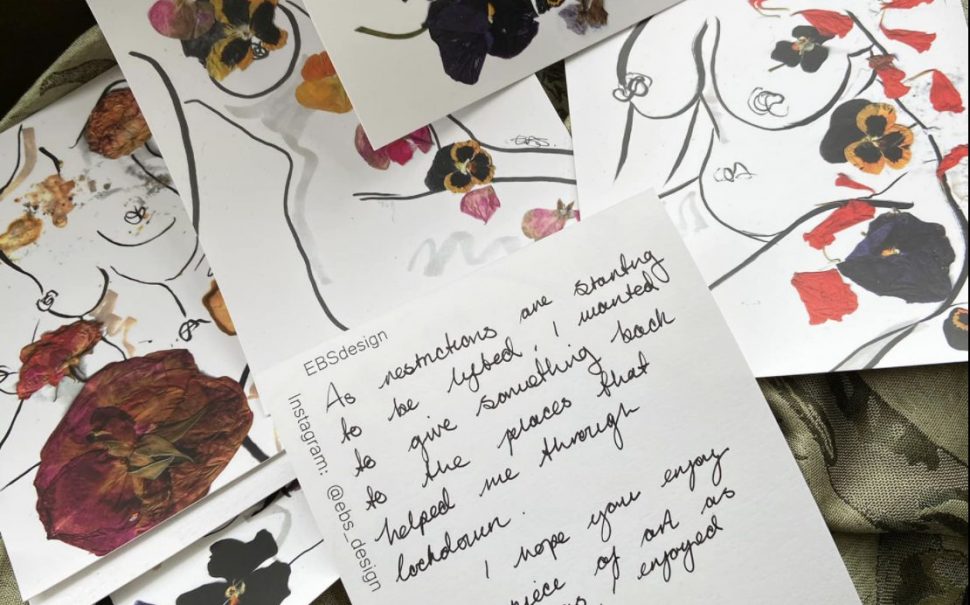 EBSdesign
Instagram: @ebs_design
As restrictions are starting
to be lifted, I wanted
to give something back
to the places that
helped me through
lockdown.
I hope you enjoy
piece of art as
enjoyed
EBS.